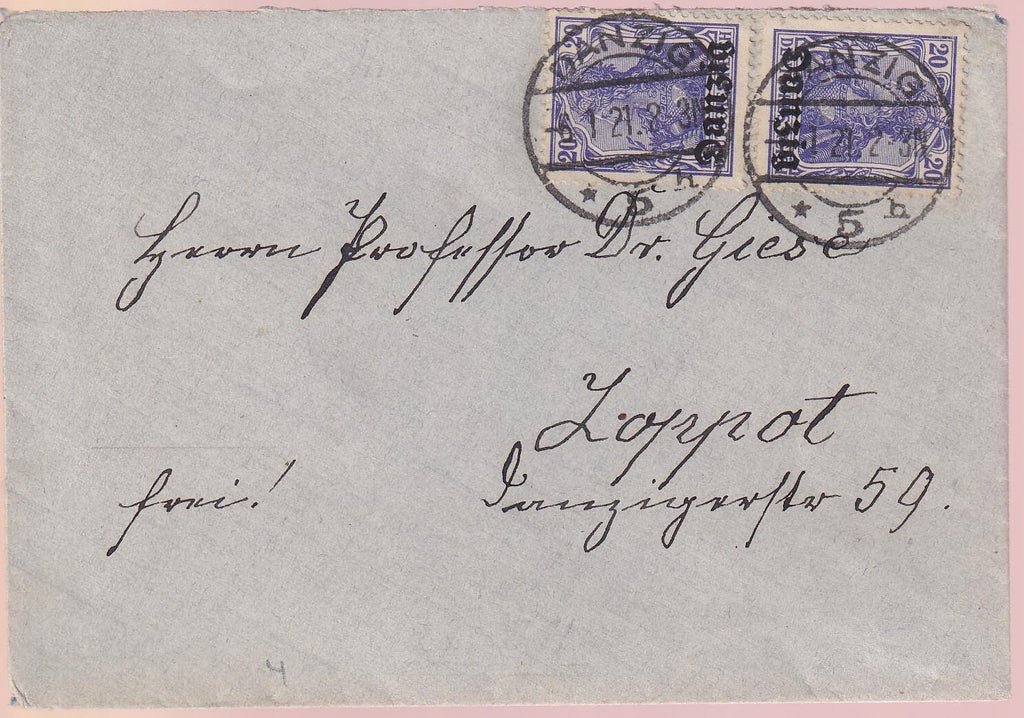 DANZIG
DANZIG
20 20
Danzig
Danzig
20 20
1 21. 2-3N
1 21 2-3N
* 5 h
* 5 b
Herrn Professor Dr. Giese
Zoppot
frei!
Danzigerstr 59.
4